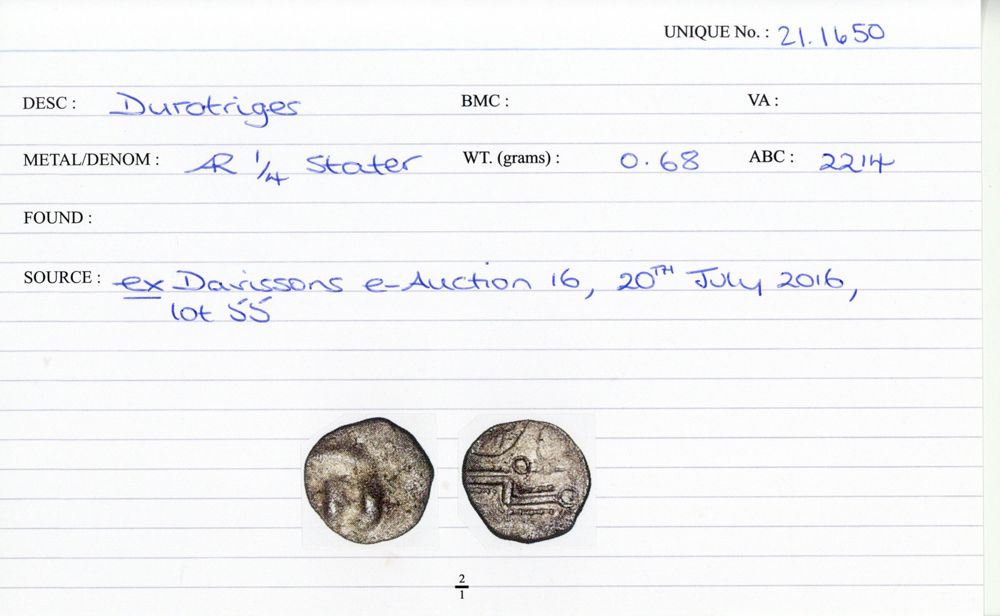 UNIQUE No. : 21.1650
DESC : Durotriges BMC : VA :
METAL/DENOM : AR 1/4 Stater WT. (grams) : 0.68 ABC : 2214
FOUND :
SOURCE : ex Davissons e-Auction 16, 20TH July 2016,
lot 55
2
1